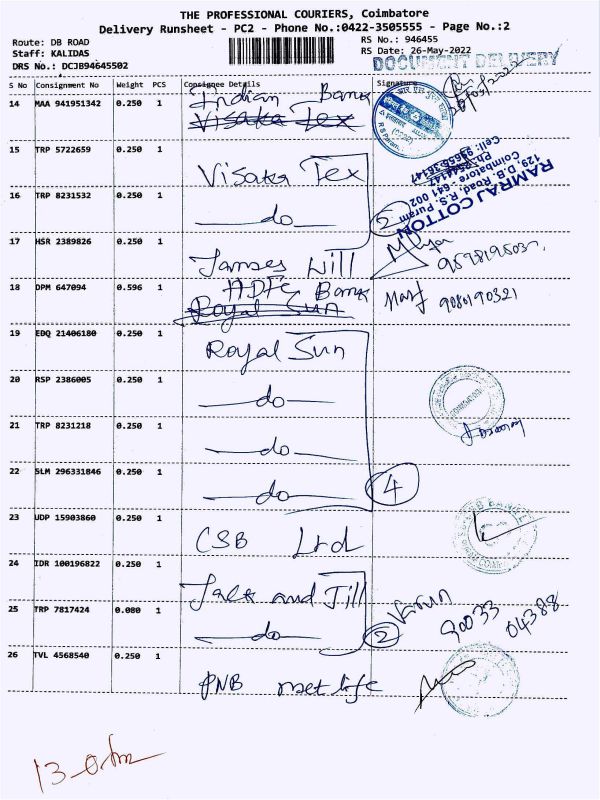 THE PROFESSIONAL COURIERS, Coimbatore
Delivery Runsheet - PC2 - Phone No.:0422-3505555 - Page No.:2
Route: DB ROAD
Staff: KALIDAS
DRS No.: DCJB94645502
RS No.: 946455
RS Date: 26-May-2022
DOCUMENT DELIVERY
S No Consignment No Weight PCS Consignee Details Signature
14 MAA 941951342 0.250 1 Indian Bank
Visaka Tex
15 TRP 5722659 0.250 1 Visaka Tex
16 TRP 8231532 0.250 1 do 2
RAMRAJ COTTON
129, D.B. Road, R.S. Puram
Coimbatore - 641 002
17 HSR 2389826 0.250 1 James Will
18 DPM 647094 0.596 1 HDFC Bank
Royal Sun
9080190321
19 EDQ 21406180 0.250 1 Royal Sun
20 RSP 2386005 0.250 1 do
21 TRP 8231218 0.250 1 do
22 SLM 296331846 0.250 1 do 4
23 UDP 15903860 0.250 1 CSB Ltd
24 IDR 100196822 0.250 1 Jack and Jill
25 TRP 7817424 0.080 1 do 2
Varun 90033 04388
26 TVL 4568540 0.250 1 PNB met life